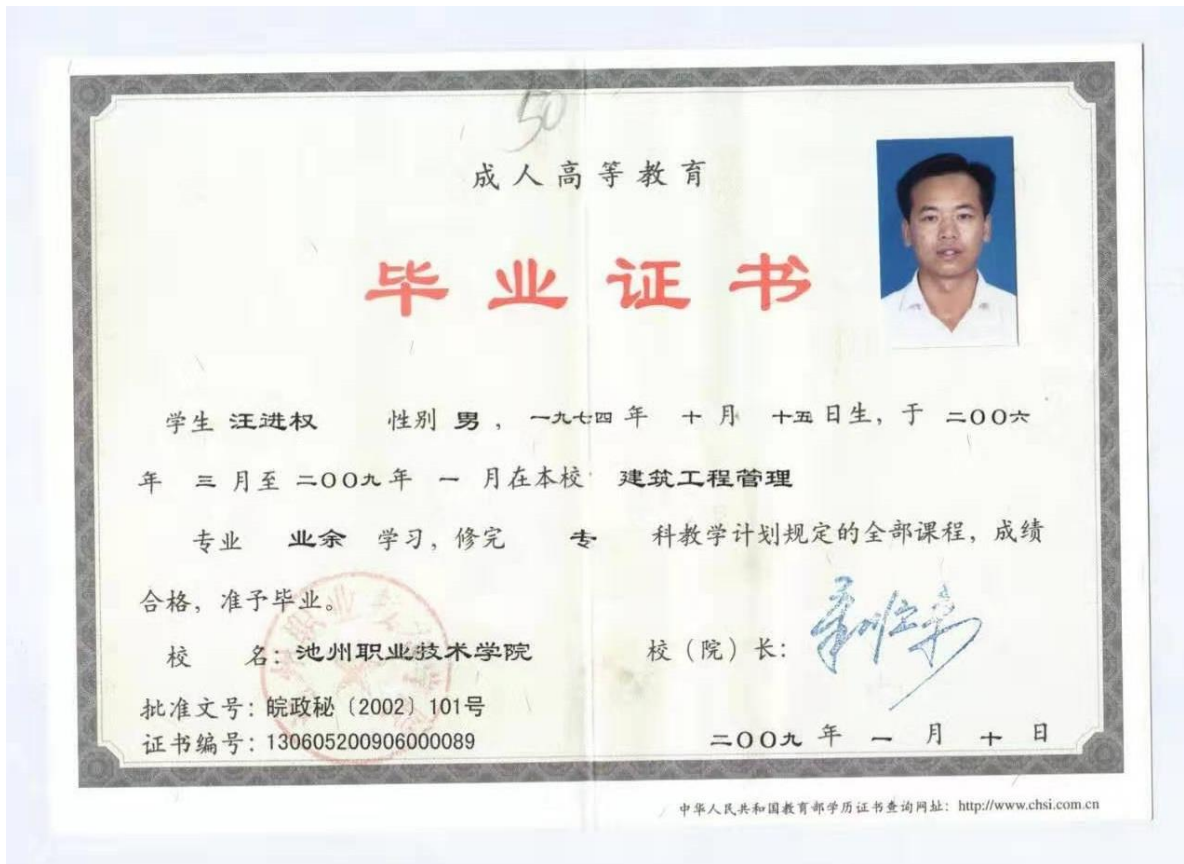 50
成人高等教育
毕业证书
学生 汪进权 性别 男 ， 一九七四 年 十 月 十五 日生，于 二OO六
年 三 月至 二OO九 年 一 月在本校 建筑工程管理
专业 业余 学习，修完 专 科教学计划规定的全部课程，成绩
合格，准予毕业。
校 名：池州职业技术学院 校（院）长：
批准文号：皖政秘〔2002〕101号
证书编号：130605200906000089 二OO九 年 一 月 十 日
中华人民共和国教育部学历证书查询网址：http://www.chsi.com.cn